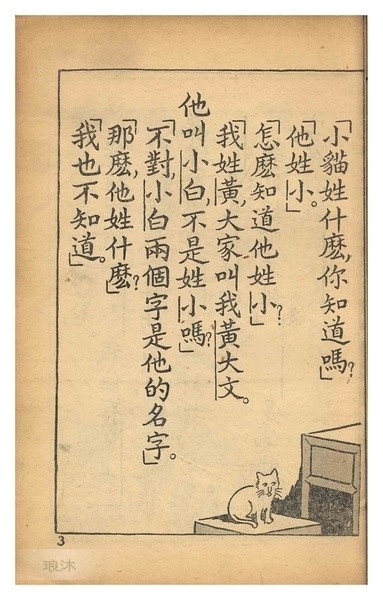 「小貓姓什麼,你知道嗎?」
「他姓小。」
「怎麼知道他姓小?」
「我姓黃,大家叫我黃大文。
他叫小白,不是姓小嗎?」
「不對,小白兩個字是他的名字。」
「那麼,他姓什麼?」
「我也不知道。」
3
琅沐